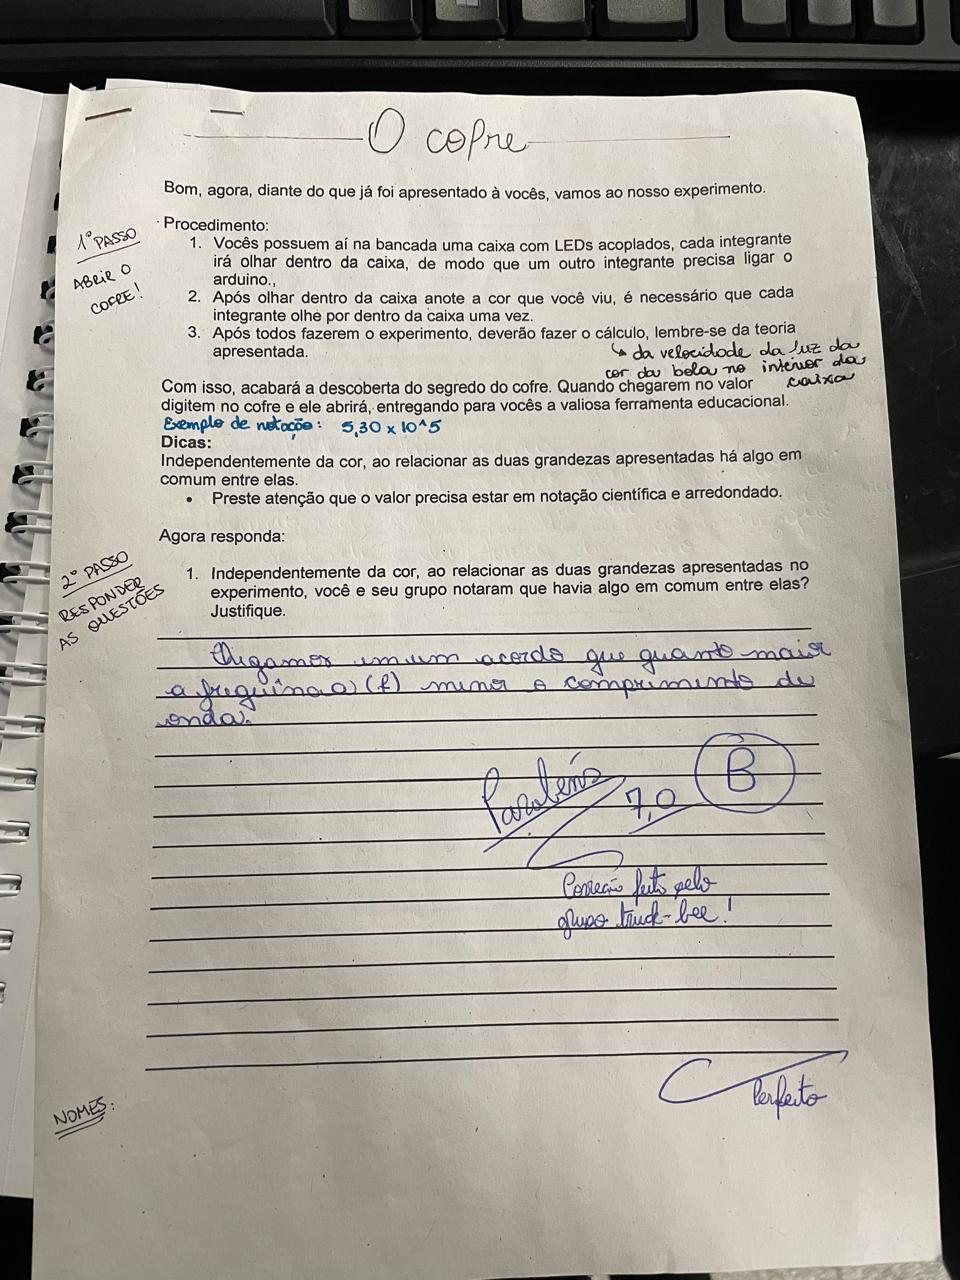 O cofre
Bom, agora, diante do que já foi apresentado à vocês, vamos ao nosso experimento.
1º PASSO
ABRIR O
COFRE!
Procedimento:
1. Vocês possuem aí na bancada uma caixa com LEDs acoplados, cada integrante
irá olhar dentro da caixa, de modo que um outro integrante precisa ligar o
arduino.,
2. Após olhar dentro da caixa anote a cor que você viu, é necessário que cada
integrante olhe por dentro da caixa uma vez.
3. Após todos fazerem o experimento, deverão fazer o cálculo, lembre-se da teoria
apresentada.
↳ da velocidade da luz da
cor da bola no interior da
caixa
Com isso, acabará a descoberta do segredo do cofre. Quando chegarem no valor
digitem no cofre e ele abrirá, entregando para vocês a valiosa ferramenta educacional.
Exemplo de notação: 5,30 x 10^5
Dicas:
Independentemente da cor, ao relacionar as duas grandezas apresentadas há algo em
comum entre elas.
• Preste atenção que o valor precisa estar em notação científica e arredondado.
Agora responda:
2º PASSO
RESPONDER
AS QUESTÕES
1. Independentemente da cor, ao relacionar as duas grandezas apresentadas no
experimento, você e seu grupo notaram que havia algo em comum entre elas?
Justifique.
acordo que quanto maior
a frequência (f) menor o comprimento de
onda.
Parabéns
7,0
B
Correção feita pelo
grupo truck-bee!
Perfeito
NOMES: